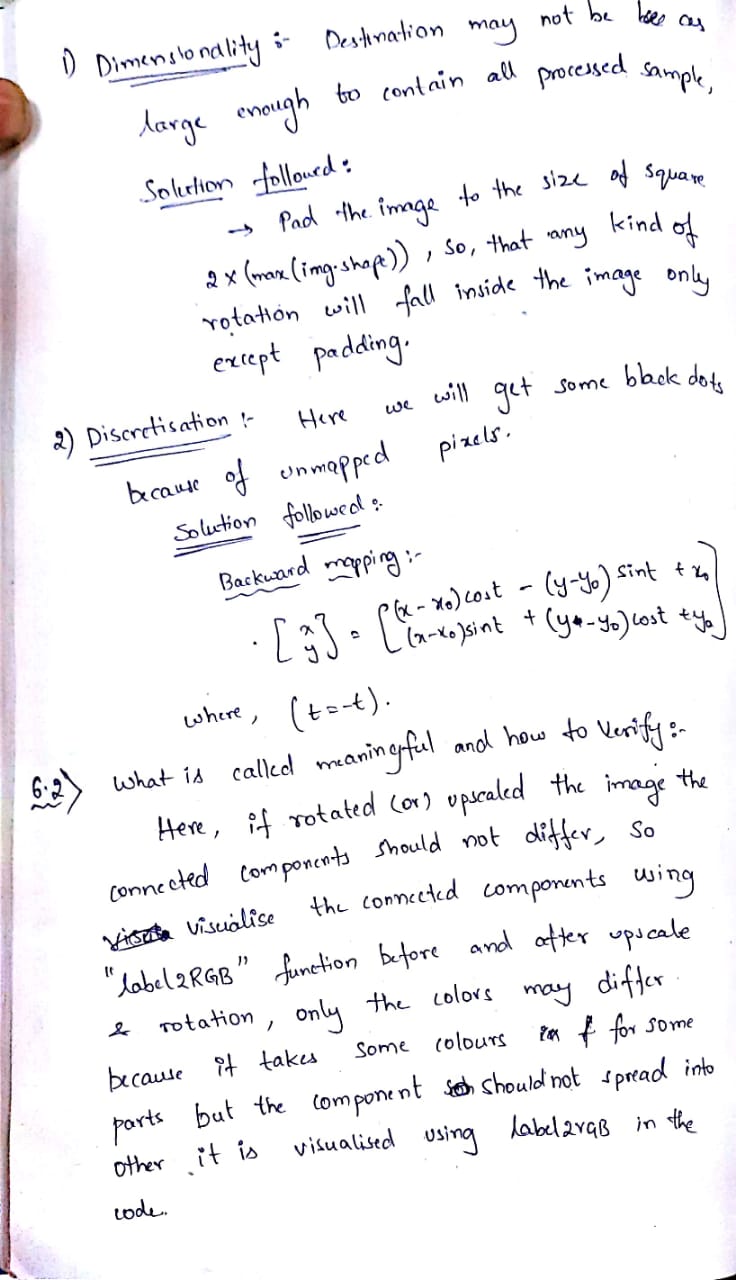 1) Dimensionality :- Destination may not be as
large enough to contain all processed sample,
Solution followed :
→ Pad the image to the size of square
2 x (max(img.shape)) , so, that any kind of
rotation will fall inside the image only
except padding.
2) Discretisation :- Here we will get some black dots
because of unmapped pixels.
Solution followed :
Backward mapping :-
[x y] = [(x-x0)cost - (y-y0)sint + x0
(x-x0)sint + (y-y0)cost + y0]
where, (t=-t).
6.2) What is called meaningful and how to Verify :-
Here, if rotated (or) upscaled the image the
connected components should not differ, so
visualise the connected components using
"label2RGB" function before and after upscale
& rotation, only the colors may differ
because it takes some colours for some
parts but the component should not spread into
other it is visualised using label2rgB in the
code.